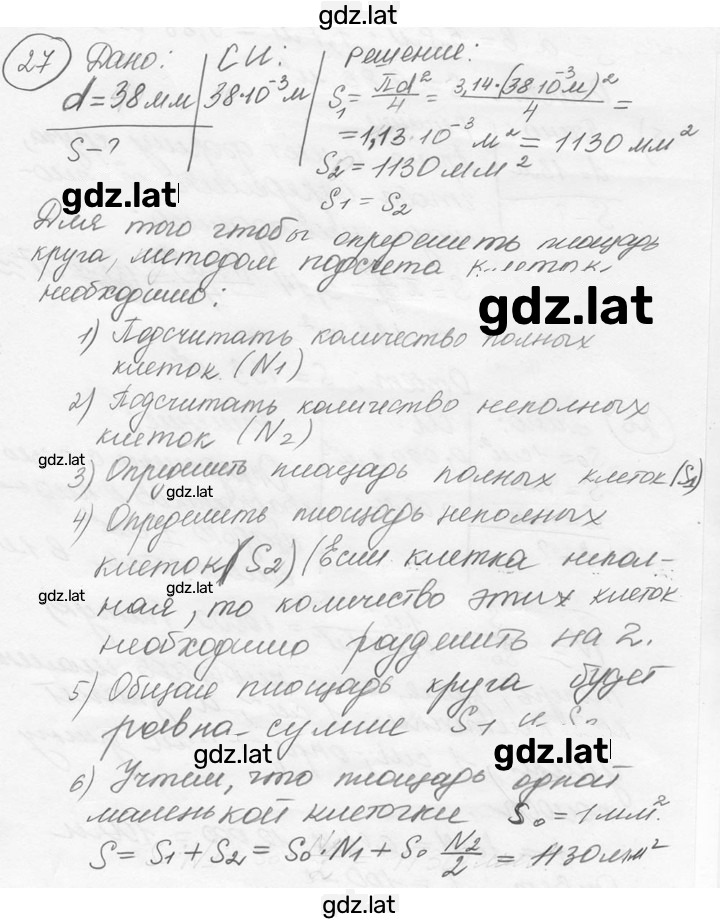 gdz.lat
27 Дано: СИ: решение:
d=38мм 38·10⁻³м S₁=πd²/4=3,14·(38·10⁻³м)²/4=
S-? =1,13·10⁻³м²=1130мм²
S₂=1130мм²
gdz.lat S₁=S₂
Для того чтобы определить площадь
круга, методом подсчета клеток,
необходимо:
gdz.lat
1) Подсчитать количество полных
клеток. (N1)
2) Подсчитать количество неполных
клеток (N2)
gdz.lat
3) Определить площадь полных клеток (S1)
gdz.lat
4) Определить площадь неполных
клеток (S2) (Если клетка непол-
gdz.lat
ная, то количество этих клеток
необходимо разделить на 2.
5) Общая площадь круга будет
равна сумме S1 и S2
gdz.lat gdz.lat
6) Учтем, что площадь одной
маленькой клеточки S₀=1мм².
S=S1+S2=S₀·N1+S₀ N2/2=1130мм²
gdz.lat